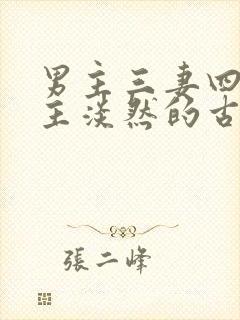 男主三妻四
主淡然的古
張二峰